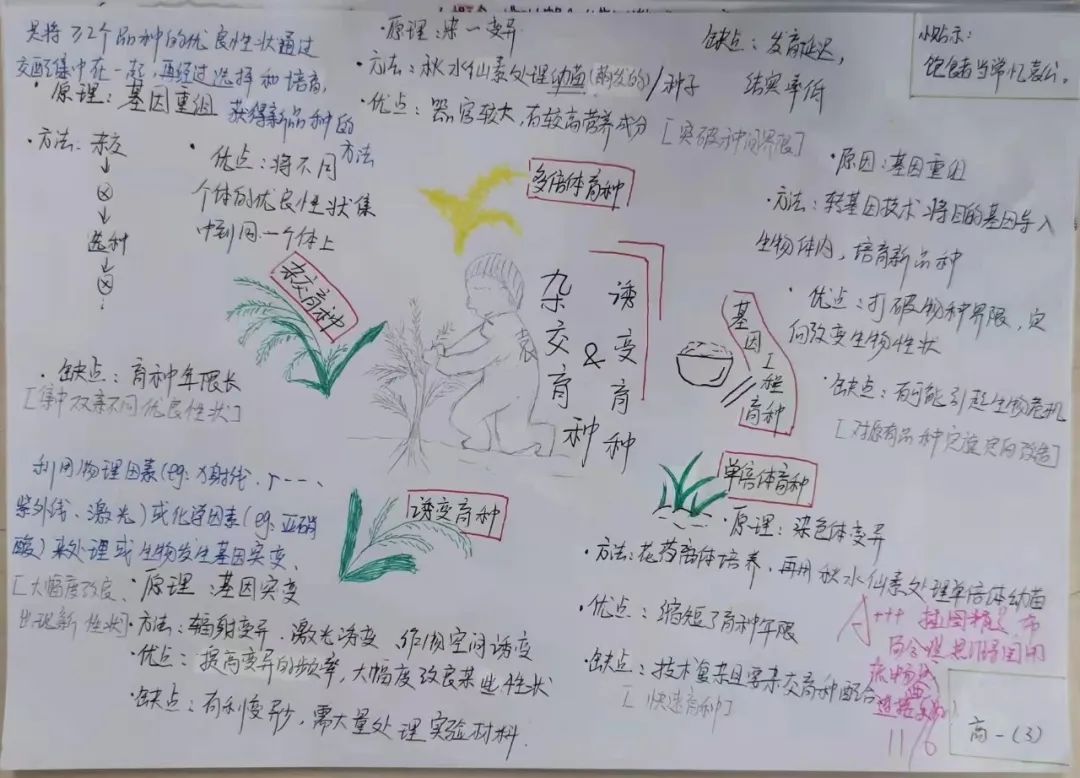 是将两2个品种的优良性状通过
交配集中在一起,再经过选择和培育,
获得新品种的
方法
·原理:基因重组
·方法:杂交
↓
⊗
↓
选种
↓
⊗
·优点:将不同
个体的优良性状集
中到同一个体上
·缺点:育种年限长
[集中双亲不同优良性状]
杂交育种
·原理:染一变异
·方法:秋水仙素处理幼苗(萌发的)/种子
·优点:器官较大,有较高营养成分
缺点:发育延迟,
结实率低
[突破种间界限]
多倍体育种
小贴示:
饱食者当常忆袁公。
杂交育种
&
诱变育种
袁
·原因:基因重组
方法:转基因技术 将目的基因导入
生物体内,培育新品种
·优点:打破物种界限,定
向改变生物性状
·缺点:有可能引起生物危机
[对原有品种实施定向改造]
基因工程育种
利用物理因素(eg:X射线、γ---、
紫外线、激光)或化学因素(eg:亚硝
酸)来处理 或生物发生基因突变、
[大幅度改良、
出现新性状]
·原理:基因突变
·方法:辐射变异、激光诱变、作用空间诱变
·优点:提高变异的频率,大幅度改良某些性状
·缺点:有利变异少,需大量处理实验材料.
诱变育种
单倍体育种
·原理:染色体变异
·方法:花药离体培养,再用秋水仙素处理单倍体幼苗
·优点:缩短了育种年限
·缺点:技术复杂且要杂交育种配合
[快速育种]
A+++ 插图精美 布
局合理
11/6
高一(3)